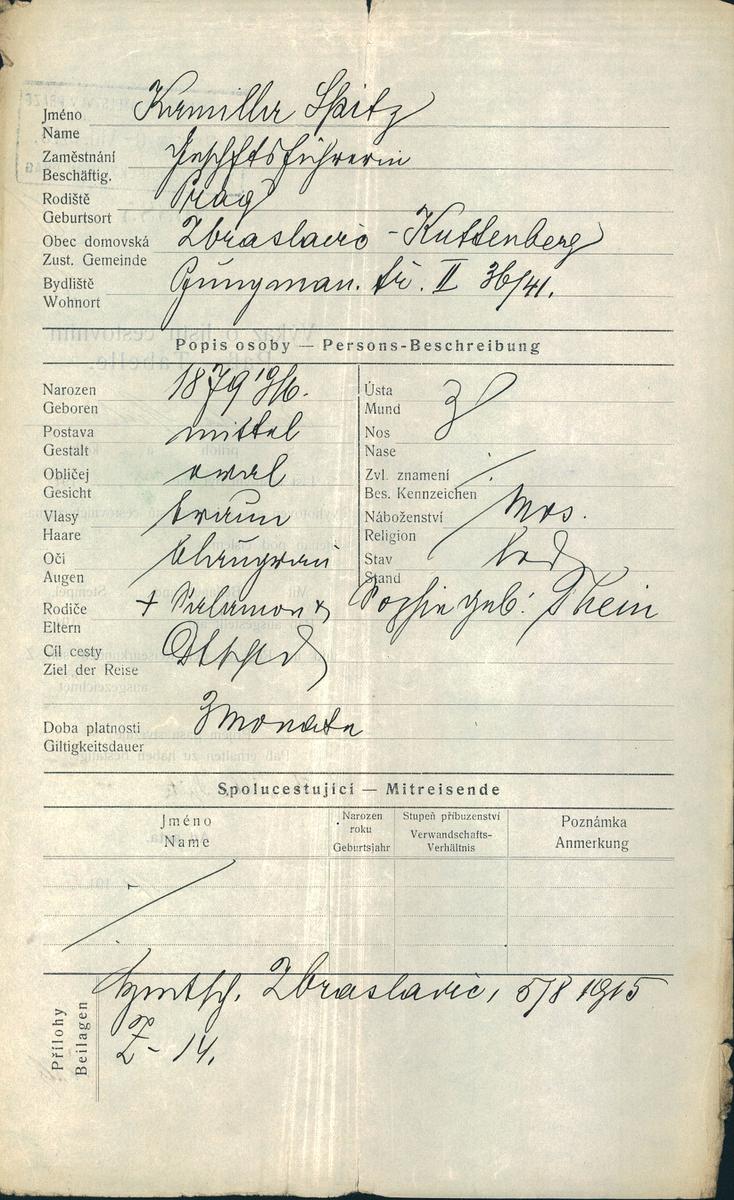 Jméno Kamilla Spitz
Name
Zaměstnání Geschftsführerin
Beschäftig.
Rodiště Prag
Geburtsort
Obec domovská Zbraslavic - Kuttenberg
Zust. Gemeinde
Bydliště Jungman. tř. II 36/41.
Wohnort
Popis osoby — Persons-Beschreibung
Narozen 1879 10/6.
Geboren
Postava mittel
Gestalt
Obličej oval
Gesicht
Vlasy braun
Haare
Oči blaugrau
Augen
Ústa
Mund
Nos
Nase
Zvl. znamení
Bes. Kennzeichen
Náboženství mos.
Religion
Stav led
Stand
Rodiče + Salamon & Sophie geb. Thein
Eltern
Cíl cesty Dtschld
Ziel der Reise
Doba platnosti 3 Monate
Giltigkeitsdauer
Spolucestující — Mitreisende
Jméno
Name
Narozen
roku
Geburtsjahr
Stupeň příbuzenství
Verwandschafts-
Verhältnis
Poznámka
Anmerkung
Přílohy
Beilagen
Zbraslavic, 5/8 1915
Z - 14.